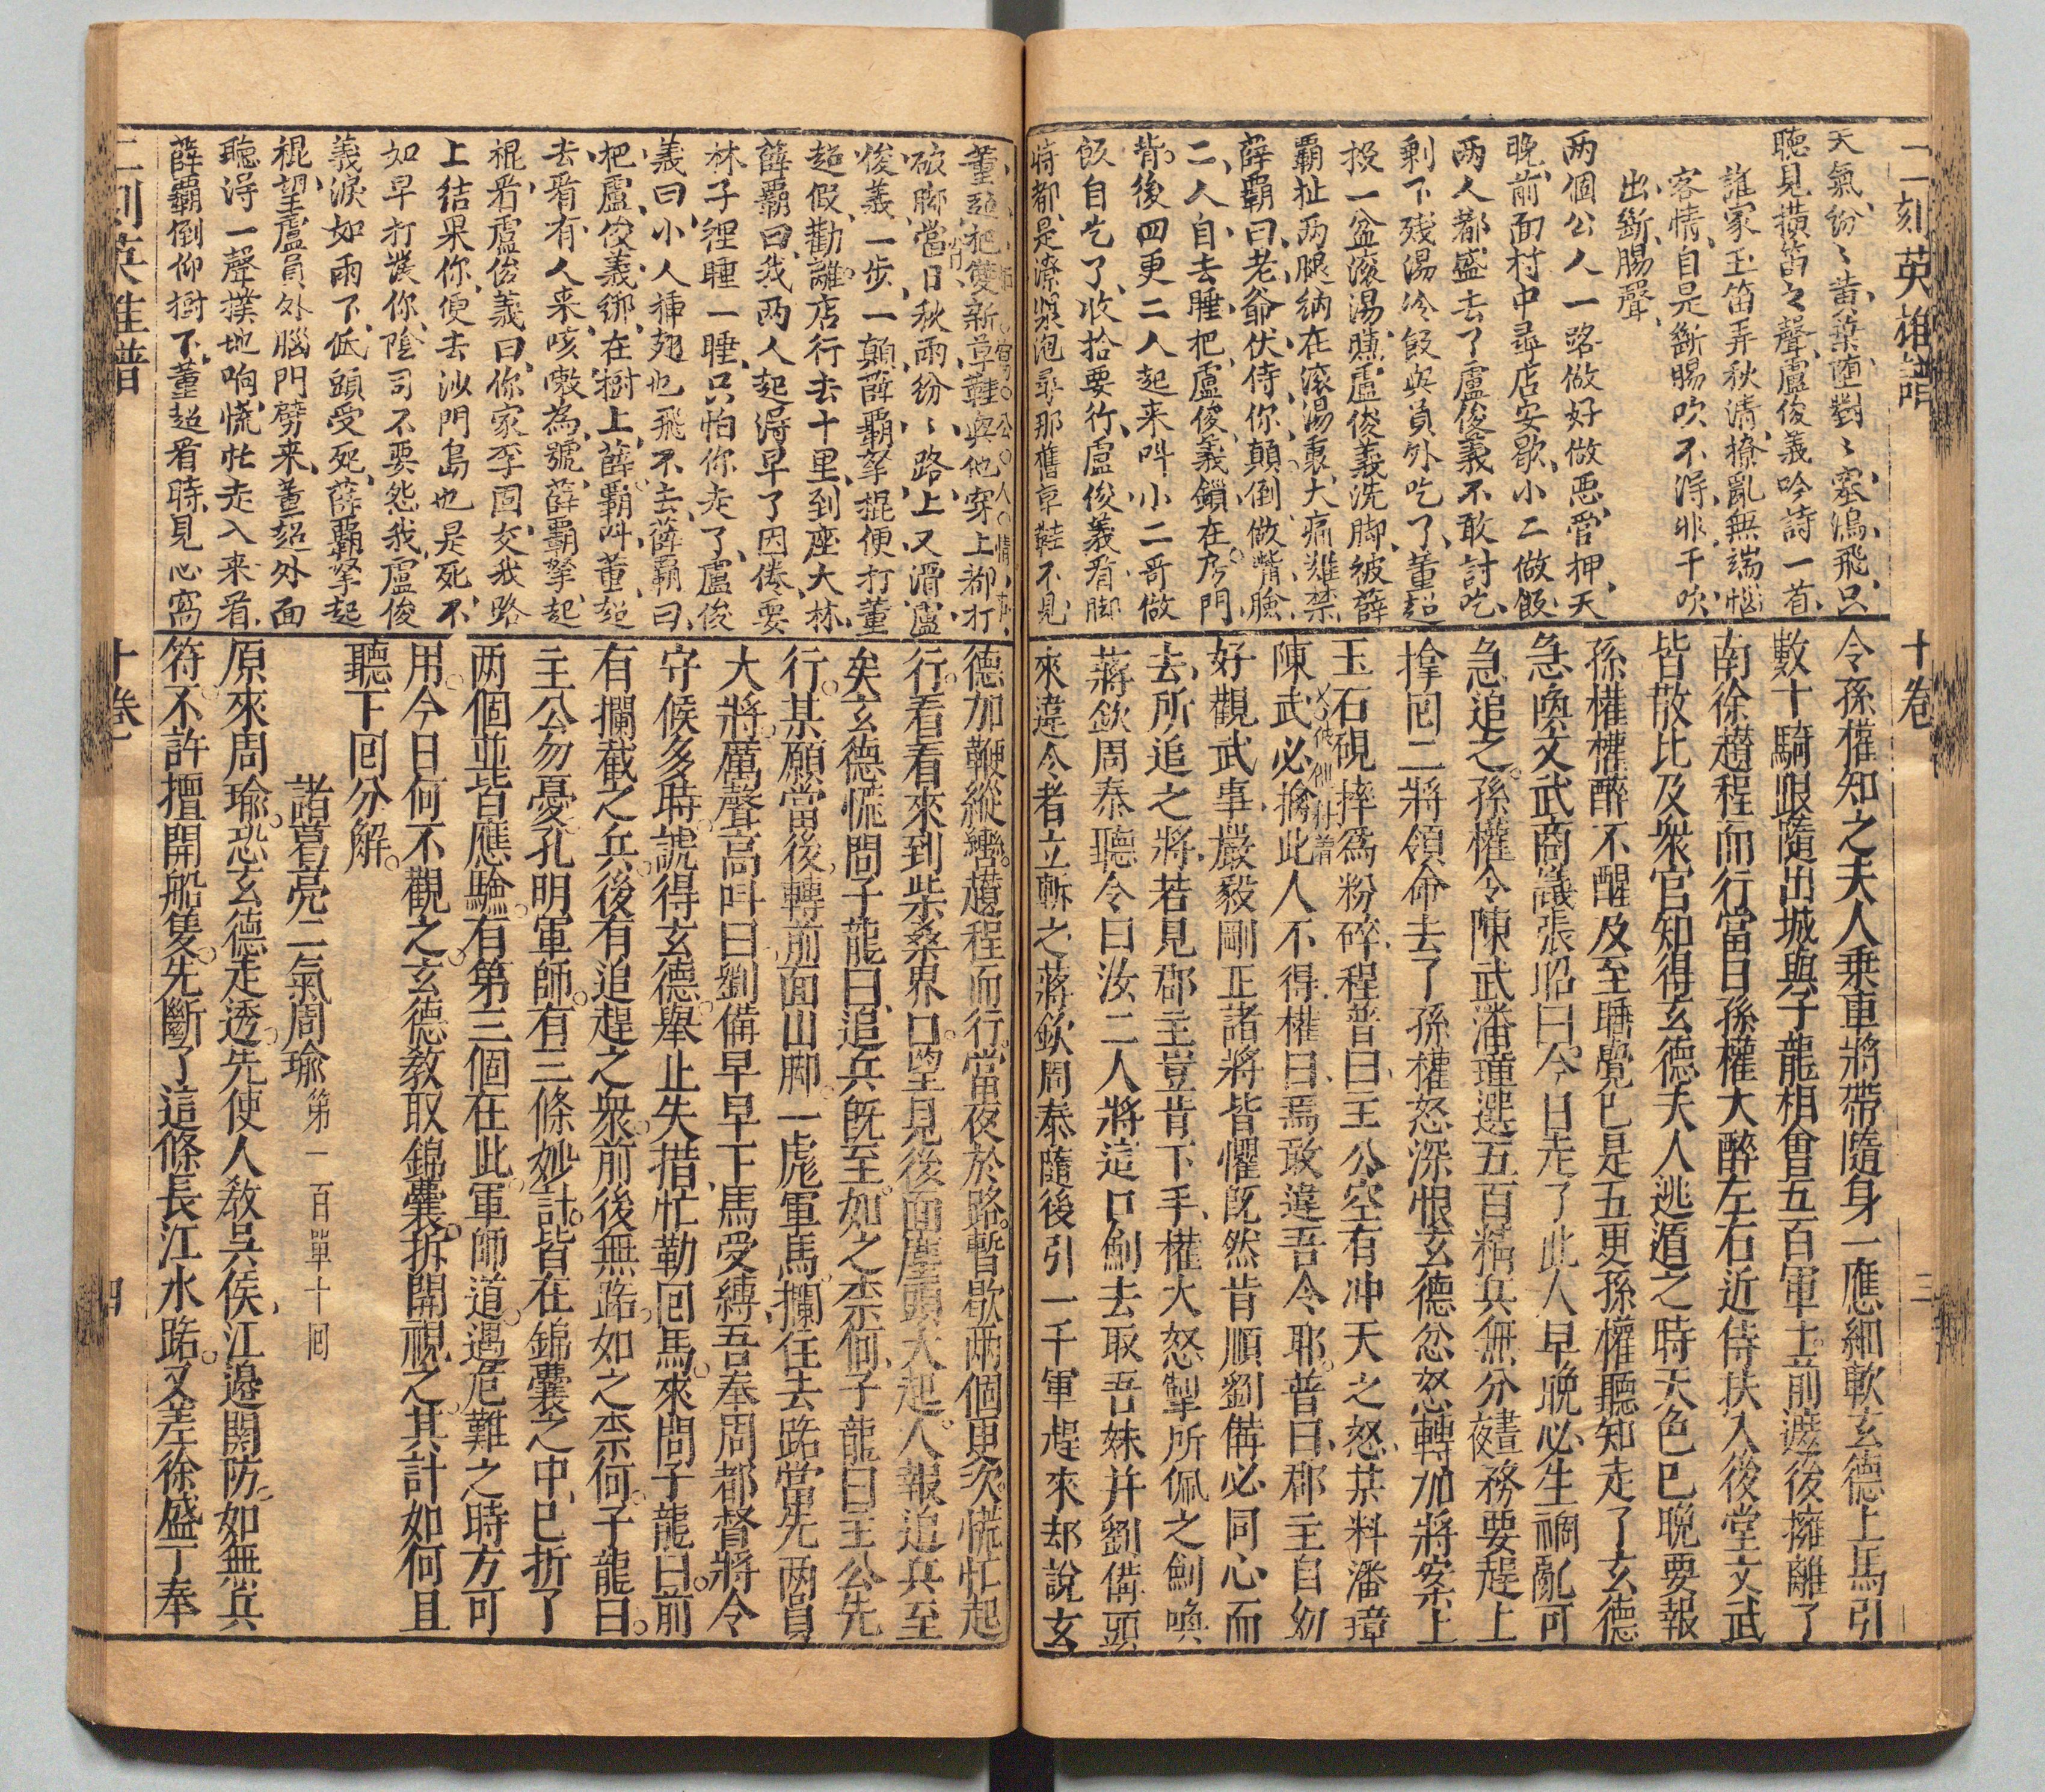 二刻英雄譜
十卷
三
天氣紛〻黃葉墮對〻塞鴻飛只
聽見橫笛之聲盧俊義吟詩一首
誰家玉笛弄秋清撩亂無端惱
客情自是斷腸吹不得非千吹
出斷腸聲
两個公人一路做好做惡管押天
晚前面村中尋店安歇小二做飯
两人都盛去了盧俊義不敢討吃
剩下殘湯冷飯與員外吃了董超
投一盆滚湯賺盧俊義洗脚被薛
覇扯两腿納在滚湯裏大痛難禁
薛覇曰老爺伏侍你顛倒做嘴臉
二人自去睡把盧俊義鎖在房門
背後四更二人起来叫小二哥做
飯自乞了收拾要行盧俊義看脚
時都是潦漿泡尋那舊草鞋不見
令孫權知之夫人乗車將帶隨身一應細軟玄德上馬引
數十騎跟隨出城與子龍相會五百軍士前遮後擁離了
南徐趲程而行當日孫權大醉左右近侍扶入後堂文武
皆散比及衆官知得玄德夫人逃遁之時天色已晚要報
孫權權醉不醒及至睡覺已是五更孫權聽知走了玄德
急喚文武商議張昭曰今日走了此人早晚必生禍亂可
急追之孫權令陳武潘璋選五百精兵無分夜晝務要趕上
拿囘二將領命去了孫權怒深恨玄德忿怒轉加將案上
玉石硯摔爲粉碎程普曰主公空有冲天之怒某料潘璋
陳武必擒此人不得權曰焉敢違吾令耶普曰郡主自幼
好觀武事嚴毅剛正諸將皆懼旣然肯順劉備必同心而
去所追之將若見郡主豈肯下手權大怒掣所佩之劍喚
蔣欽周泰聽令曰汝二人將這口劍去取吾妹并劉備頭
來違令者立斬之蔣欽周泰隨後引一千軍趕來却說玄
董超把雙新草鞋與他穿上都打
破脚當日秋雨紛〻路上又滑盧
俊義一步一顛薛覇拏棍便打董
超假勸離店行去十里到座大林
薛覇曰我两人起得早了因倦要
林子裡睡一睡只怕你走了盧俊
義曰小人揷翅也飛不去薛覇曰
把盧俊義綁在樹上薛覇叫董超
去看有人来咳嗽為號薛覇拏起
棍看盧俊義曰你家李固交我路
上結果你便去沙門島也是死不
如早打發你陰司不要怨我盧俊
義淚如雨下低頭受死薛覇拏起
棍望盧員外腦門劈来董超外面
聽得一聲撲地响慌忙走入来看
薛覇倒仰樹下董超看時見心窩
德加鞭縱轡趲程而行當夜於路暫歇兩個更次慌忙起
行看看來到柴桑界口望見後面塵頭大起人報追兵至
矣玄德慌問子龍曰追兵旣至如之柰何子龍曰主公先
行某願當後轉前面山脚一彪軍馬攔住去路當先两員
大將厲聲高叫曰劉備早早下馬受縛吾奉周都督將令
守候多時諕得玄德舉止失措忙勒囘馬來問子龍曰前
有攔截之兵後有追趕之衆前後無路如之柰何子龍曰
主公勿憂孔明軍師有三條妙計皆在錦囊之中已拆了
两個並皆應驗有第三個在此軍師道遇危難之時方可
用今日何不觀之玄德教取錦囊拆開視之其計如何且
聽下囘分解
諸葛亮二氣周瑜第一百單十囘
原來周瑜恐玄德走透先使人教吳侯江邊関防如無兵
符不許擅開船隻先斷了這條長江水路又差徐盛丁奉
二刻英雄譜
十卷
四